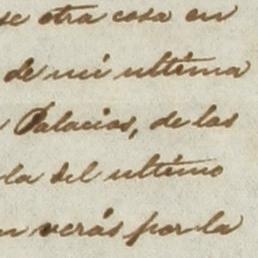 se otra cosa en
de mi ultima
Palacios, de las
la del ultimo
verás por la